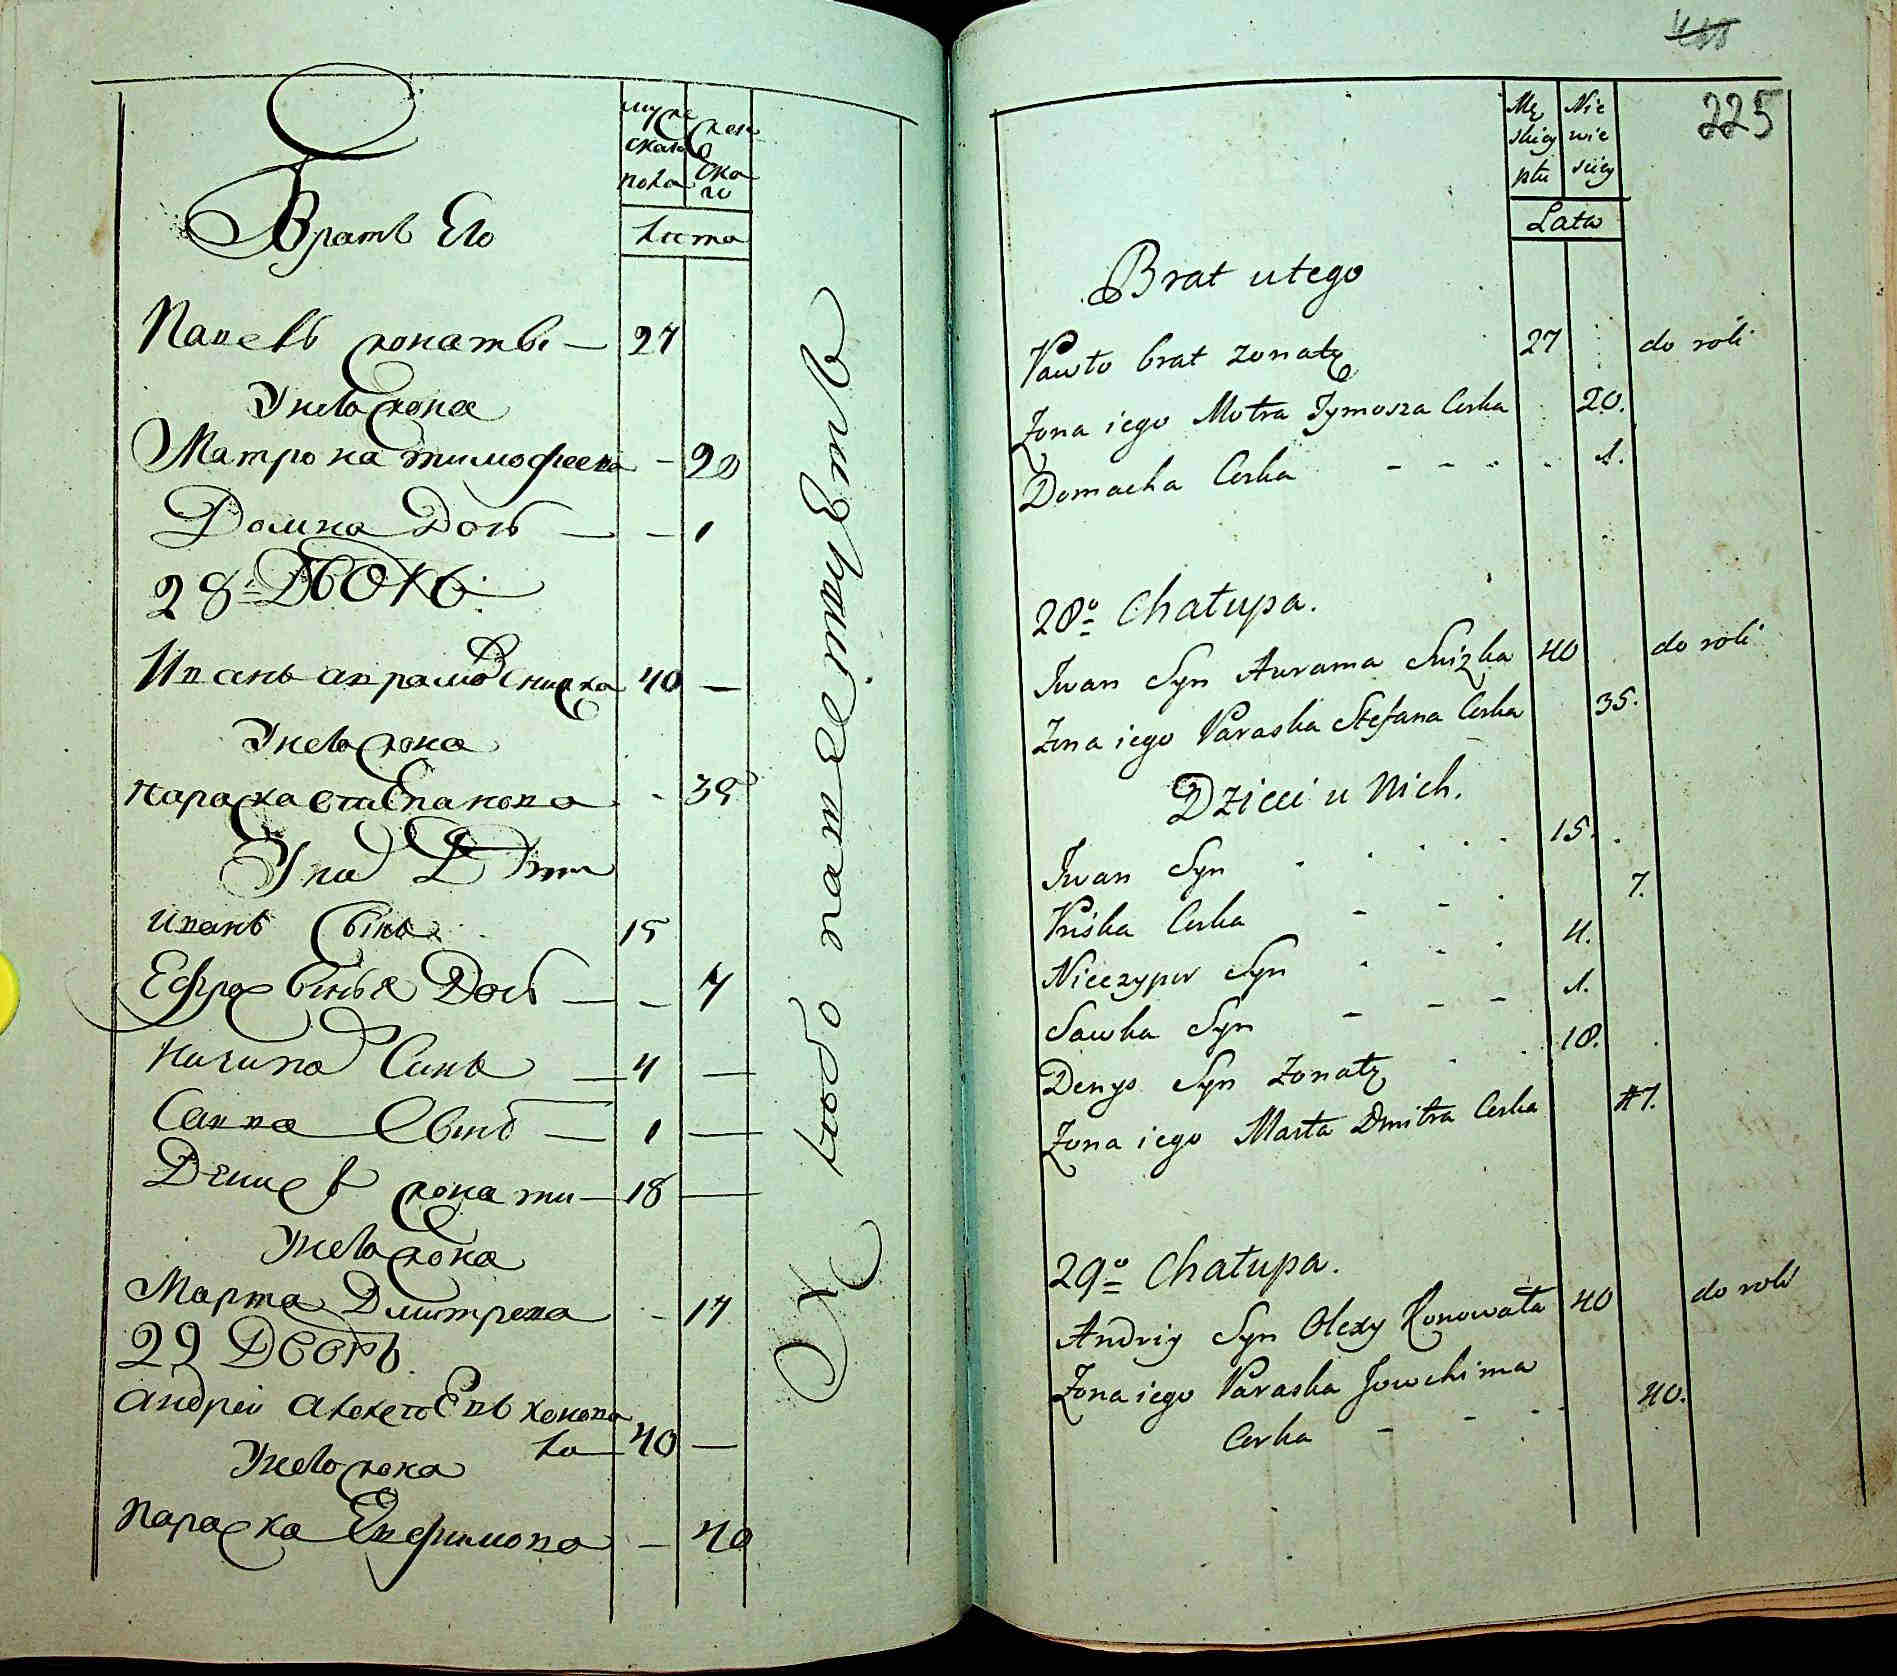 муже
ска
пола
жен
ска
го
Лета
Братъ Его
Павелъ женатъ — 27
У него жена
Матрона тимофеева — 20
Домна Дочь — — 1
28й ДВОРЪ
Иванъ аврамовъ Снишка 40 —
У него жена
параска степанова - 35
У них Дѣти
иванъ Сынъ 15
Ефросинья Дочь — — 7
Ничипор Синъ — 4 —
Савва Сынъ — 1 —
Денис женати — 18 —
У него жена
Марта Дмитрева - 17
29 Дворъ
андрей алексеевъ конова
ла 40 —
У него жена
параска Евфимова — 40
К хлебопашеству
225
Mę
skiey
płci
Nie
wie
sciey
Lata
Brat u tego
Pawło brat żonaty 27 do roli
Żona iego Motra Tymosza Corka 20.
Domacha Corka - - - - 1.
28o Chałupa.
Iwan Syn Awrama Snizka 40 do roli
Żona iego Paraska Stefana Corka 35.
Dzieci u Nich.
Iwan Syn . . . . . 15.
Priska Corka - - . 7.
Nieczypor Syn . - . 4.
Sawka Syn - - - 1.
Denys Syn Żonaty . . 18.
Żona iego Marta Dmitra Corka 17.
29o Chałupa.
Andriy Syn Olexy Konowała 40 do roli
Żona iego Paraska Jowchima
Corka - - - . 40.